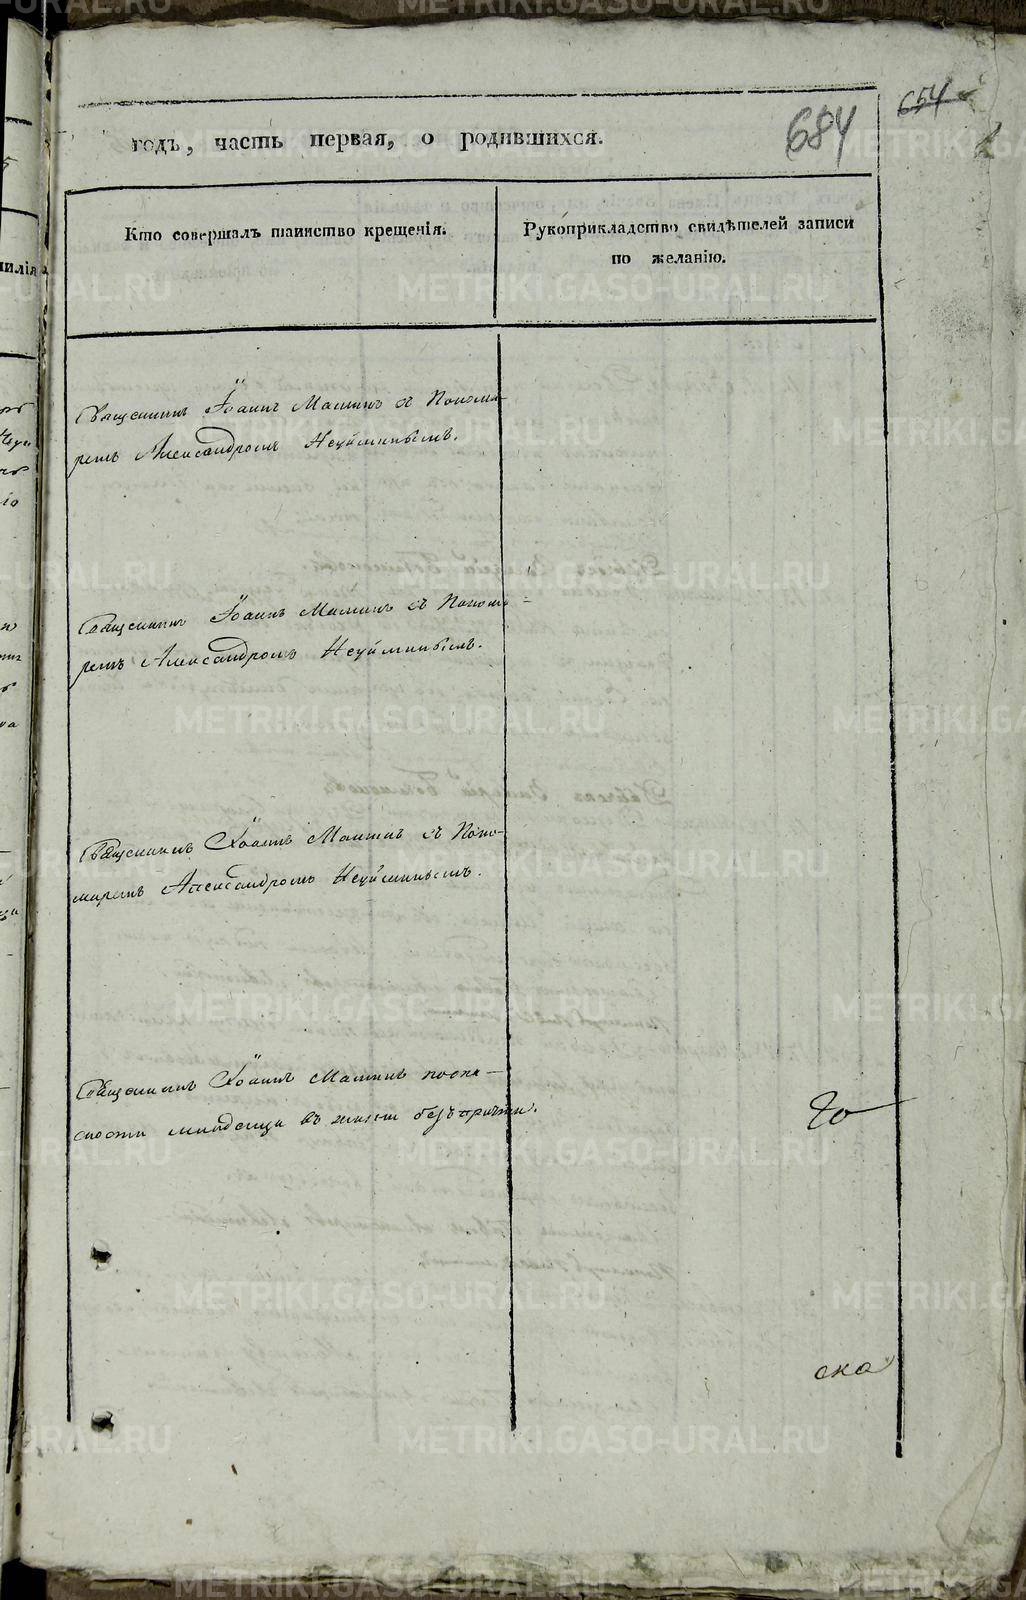 654
684
годъ, часть первая, о родившихся.
Кто совершалъ таинство крещенія.
Рукоприкладство свидѣтелей записи
по желанію.
Священникъ Іоаннъ Маминъ съ Понома-
ремъ Александромъ Неуйминымъ.
Священникъ Іоаннъ Маминъ съ Понома-
ремъ Александромъ Неуйминымъ.
Священникъ Іоаннъ Маминъ съ Поно-
маремъ Александромъ Неуйминымъ.
Священникъ Іоаннъ Маминъ поопа-
сности младенца въ жизни безъ причта.
ска
METRIKI.GASO-URAL.RU